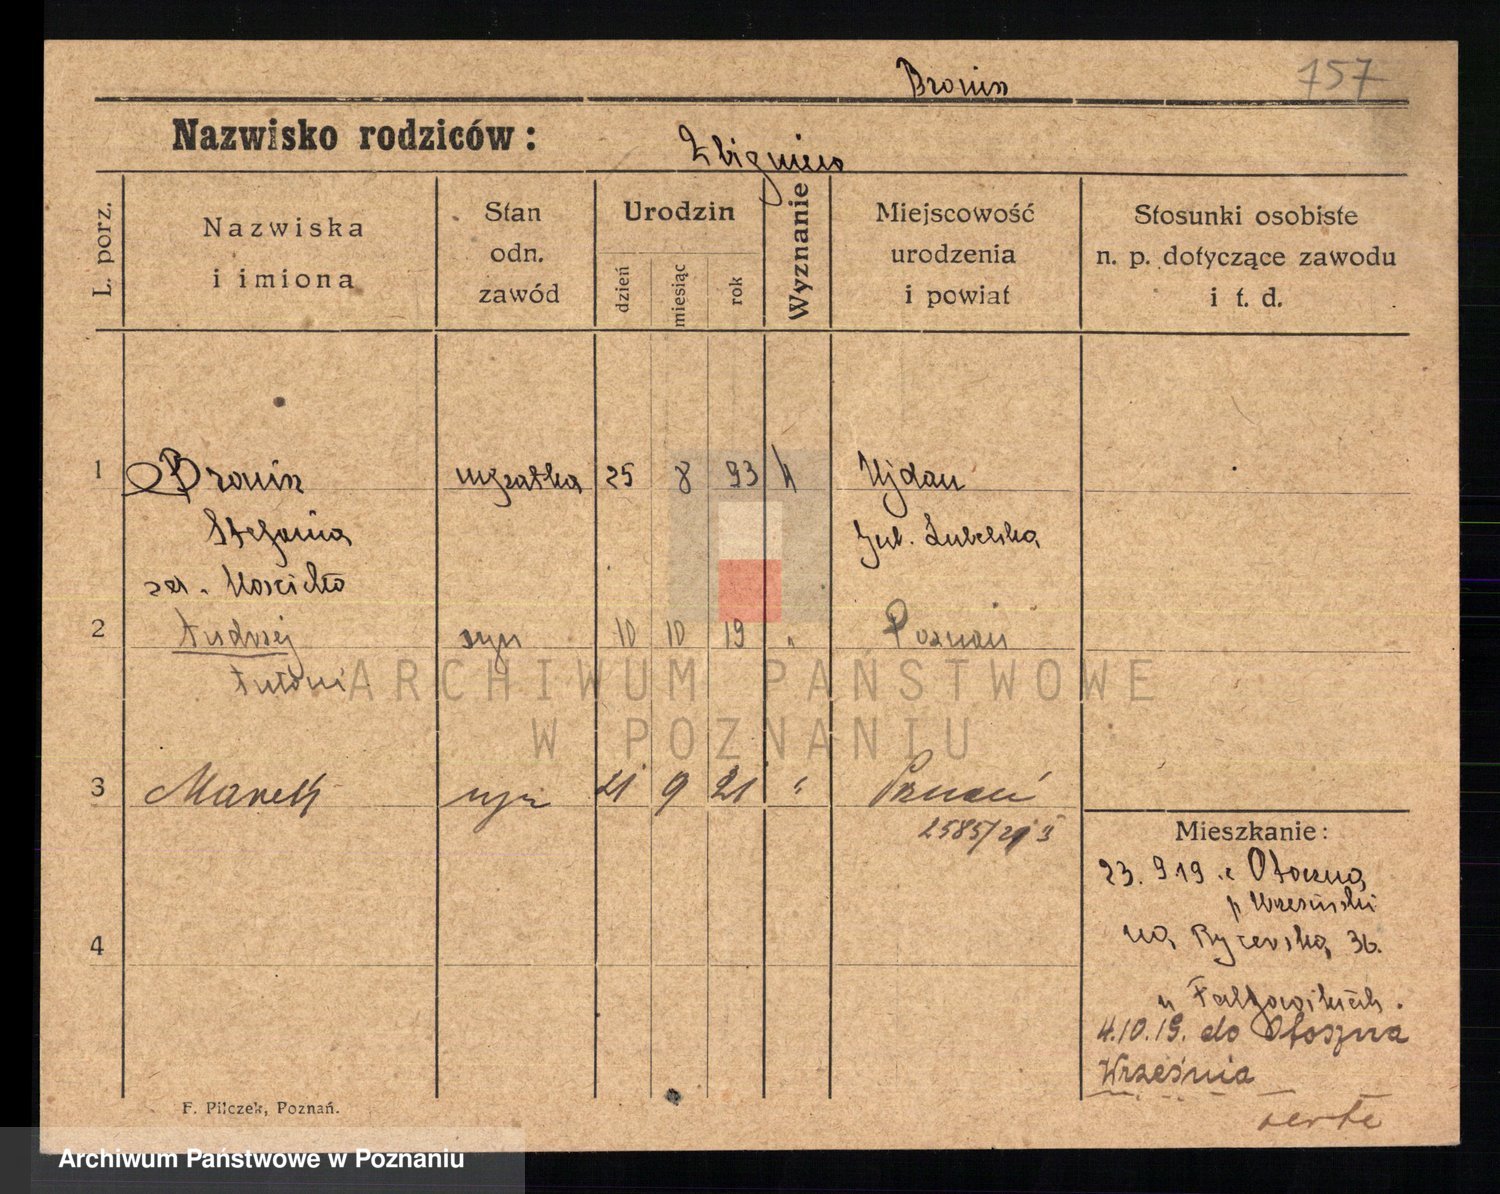 Bronin
757
Nazwisko rodziców:
Zbigniew
L. porz.
Nazwiska
i imiona
Stan
odn.
zawód
Urodzin
dzień
miesiąc
rok
Wyznanie
Miejscowość
urodzenia
i powiat
Stosunki osobiste
n. p. dotyczące zawodu
i t. d.
1 Bronin mężatka 25 8 93 k Ujdan
Stefania gub. Lubelska
zd. Mościcka
2 Andrzej syn 10 10 19 " Poznań
Antoni
ARCHIWUM PAŃSTWOWE
W POZNANIU
3 Marek syn 21 9 21 " Poznań
2585/21
Mieszkanie:
23. 9 19 z Otoczna
p Wrzesiński
4 na Ryczerska 36.
u
4.10.19. do Otoszna
Września
verte
F. Pilczek, Poznań.
Archiwum Państwowe w Poznaniu